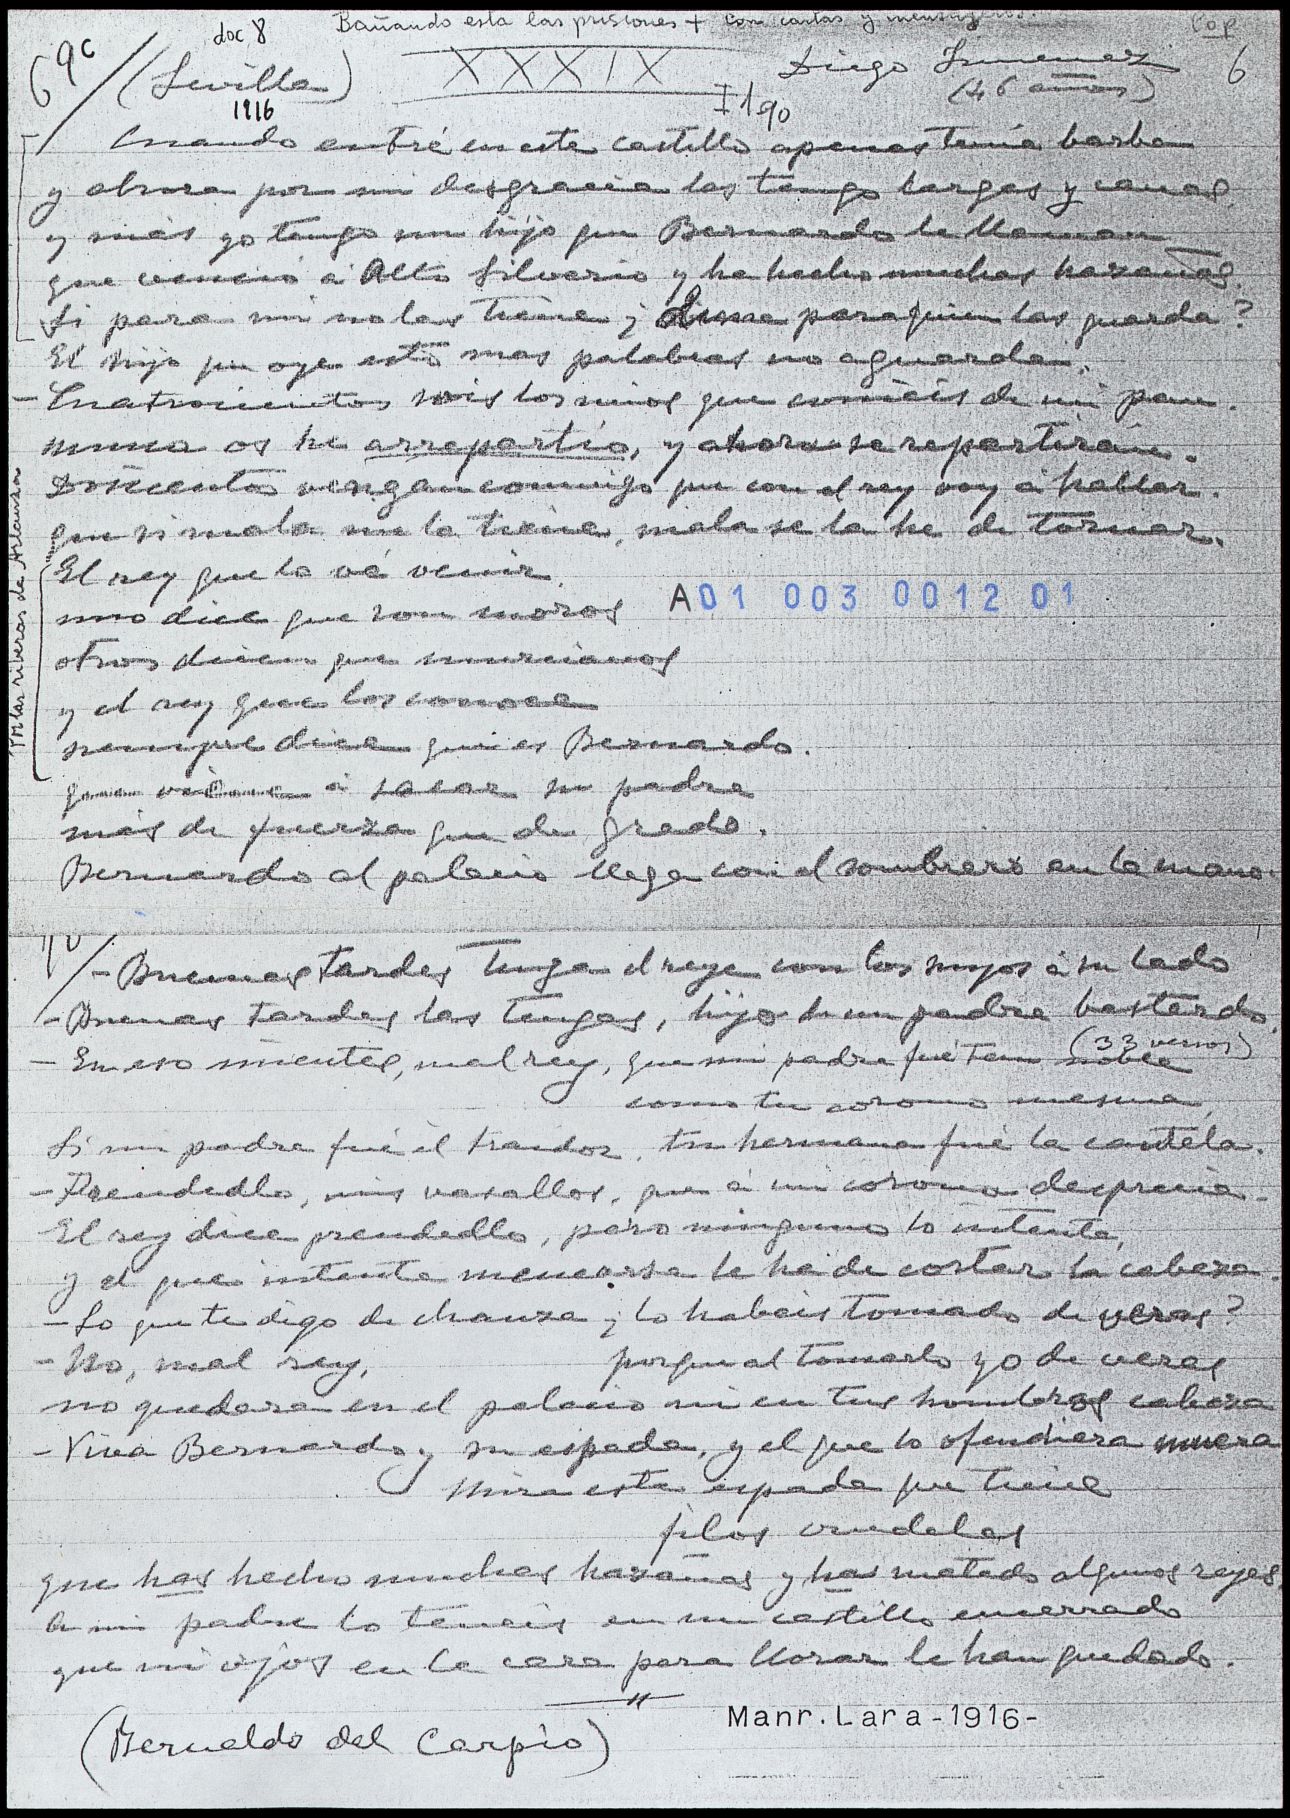 Bañando esta las prisiones + Con cartas y mensajeros.
cop
doc 8
69c
(Sevilla)
XXXIX
Diego Jimenez
6
1916
(46 años)
I 190
Cuando entré en este castillo apenas tenía barba
y ahora por mi desgracia las tengo largas y canas.
y más yo tengo un hijo que Bernardo le llaman
que venció á Alto Silverio y ha hecho muchas hazañas.
Si para mi no las tiene ¿ dime para quien las guarda?
El hijo que oye esto mas palabras no aguarda.
- Cuatrocientos sois los mios que coméis de mi pan.
nunca os he arrepartío, y ahora se repartirán.
Doscientos vengan conmigo que con el rey voy á hablar.
que si mala me la tiene, mala se la he de tornar.
Por las riberas de Arlanza
El rey que lo vé venir
uno dice que son moros
A01 003 0012 01
otros dicen que murcianos
y el rey que los conoce
siempre dice quien es Bernardo.
que viene á sacar su padre
más de fuerza que de grado.
Bernardo al palacio llega con el sombrero en la mano.
- Buenas tardes tenga el reye con los suyos á su lado
- Buenas tardes las tengas, hijo de un padre bastardo.
(33 versos)
- En eso mientes, mal rey, que mi padre fué tan noble
como tu corona mesma,
Si mi padre fué el traidor, tu hermana fué la cautela.
- Prendedlo, mis vasallos, que á mi corona desprecia.
- El rey dice prendedlo, pero ninguno lo intenta,
y el que intente menearse le ha de costar la cabeza.
- Lo que te digo de chanza ¿ lo habéis tomado de veras?
- No, mal rey, porque al tomarlo yo de veras
no quedara en el palacio ni en tus hombros cabeza
- Viva Bernardo y su espada, y el que lo ofendiera muera
Mira esta espada que tiene
filos crudeles
que has hecho muchas hazañas y has matado algunos reyes,
a mi padre lo tenéis en un castillo encerrado
que ni ojos en la cara para llorar le han quedado.
Manr. Lara -1916-
(Bernaldo del Carpio)